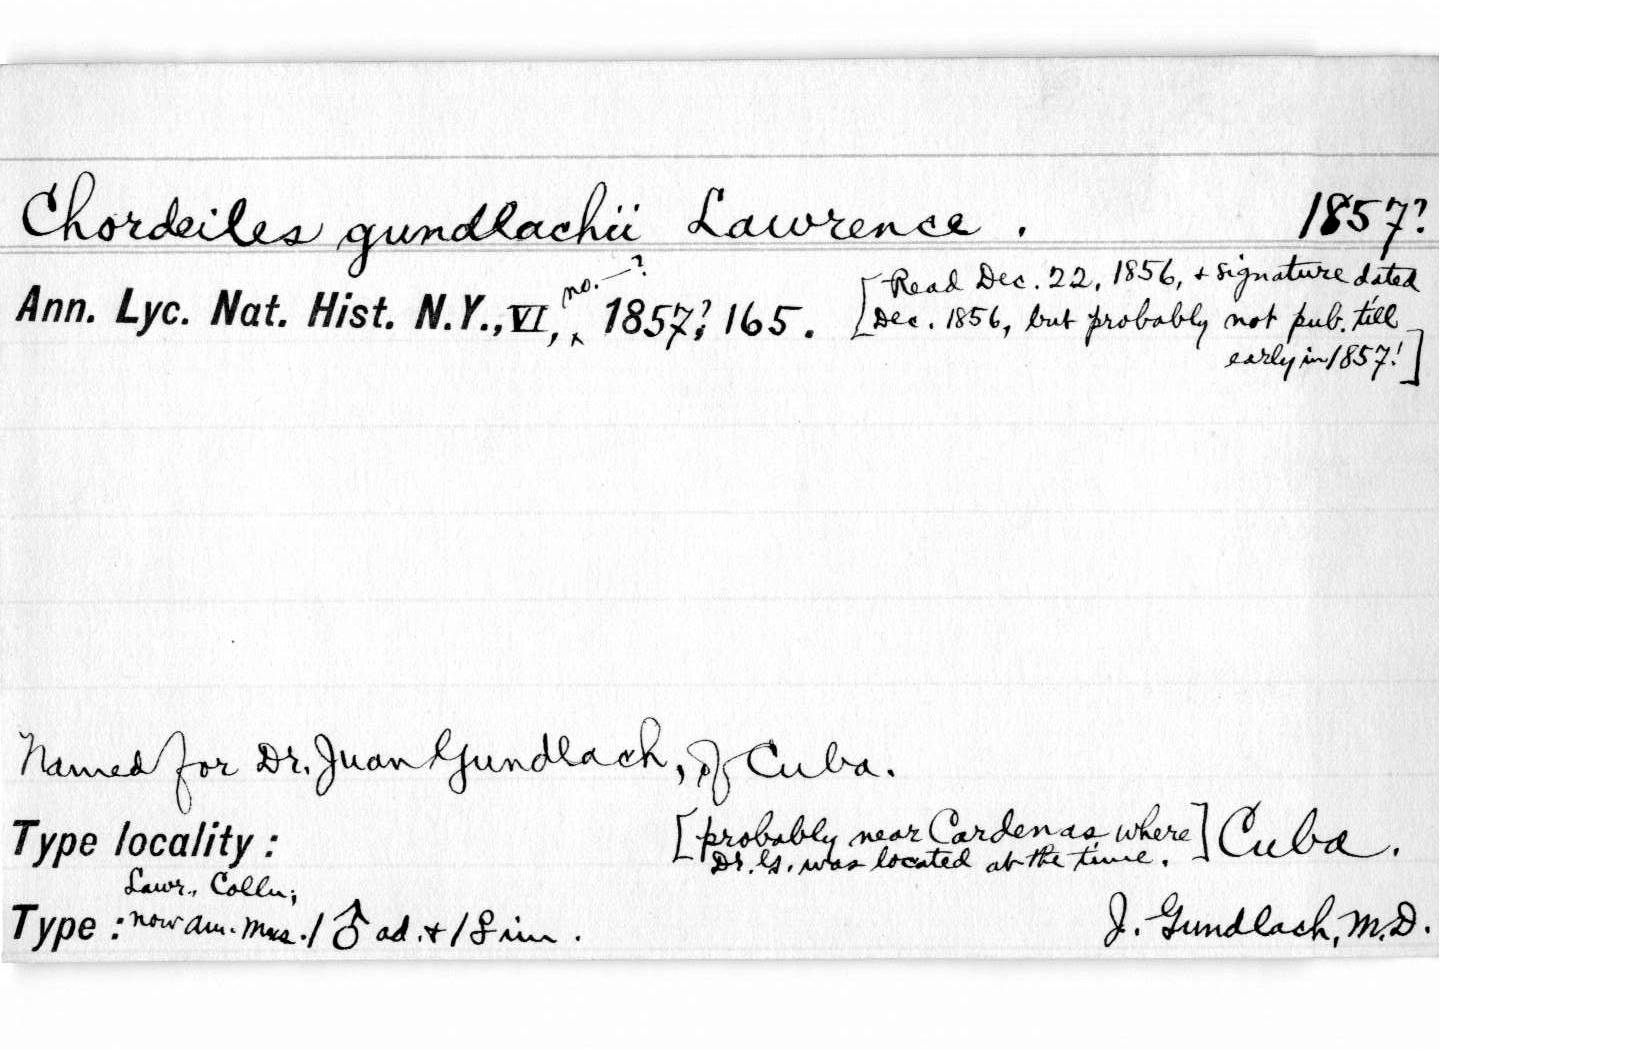 Chordeiles gundlachii Lawrence. 1857?
no. —?
Ann. Lyc. Nat. Hist. N.Y., VI, ‸ 1857?; 165. [Read Dec. 22, 1856, + signature dated
Dec. 1856, but probably not pub. till
early in 1857!]
Named for Dr. Juan Gundlach, of Cuba.
Type locality: [probably near Cardenas where
Dr. G. was located at the time.] Cuba.
Lawr. Colln;
Type: now Am. Mus. 1 ♂ ad. + 1 ♀ im. J. Gundlach, M.D.